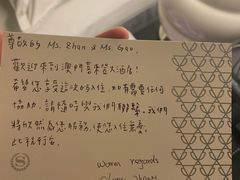 尊敬的 Ms. Zhan & Ms. Gao,
歡迎來到澳門喜來登大酒店!
希望您享受這次的入住,如有需要任何
協助,請隨時與我們聯繫,我們
將欣然為您服務,使您入住無憂。
此致行客,
Warm regards